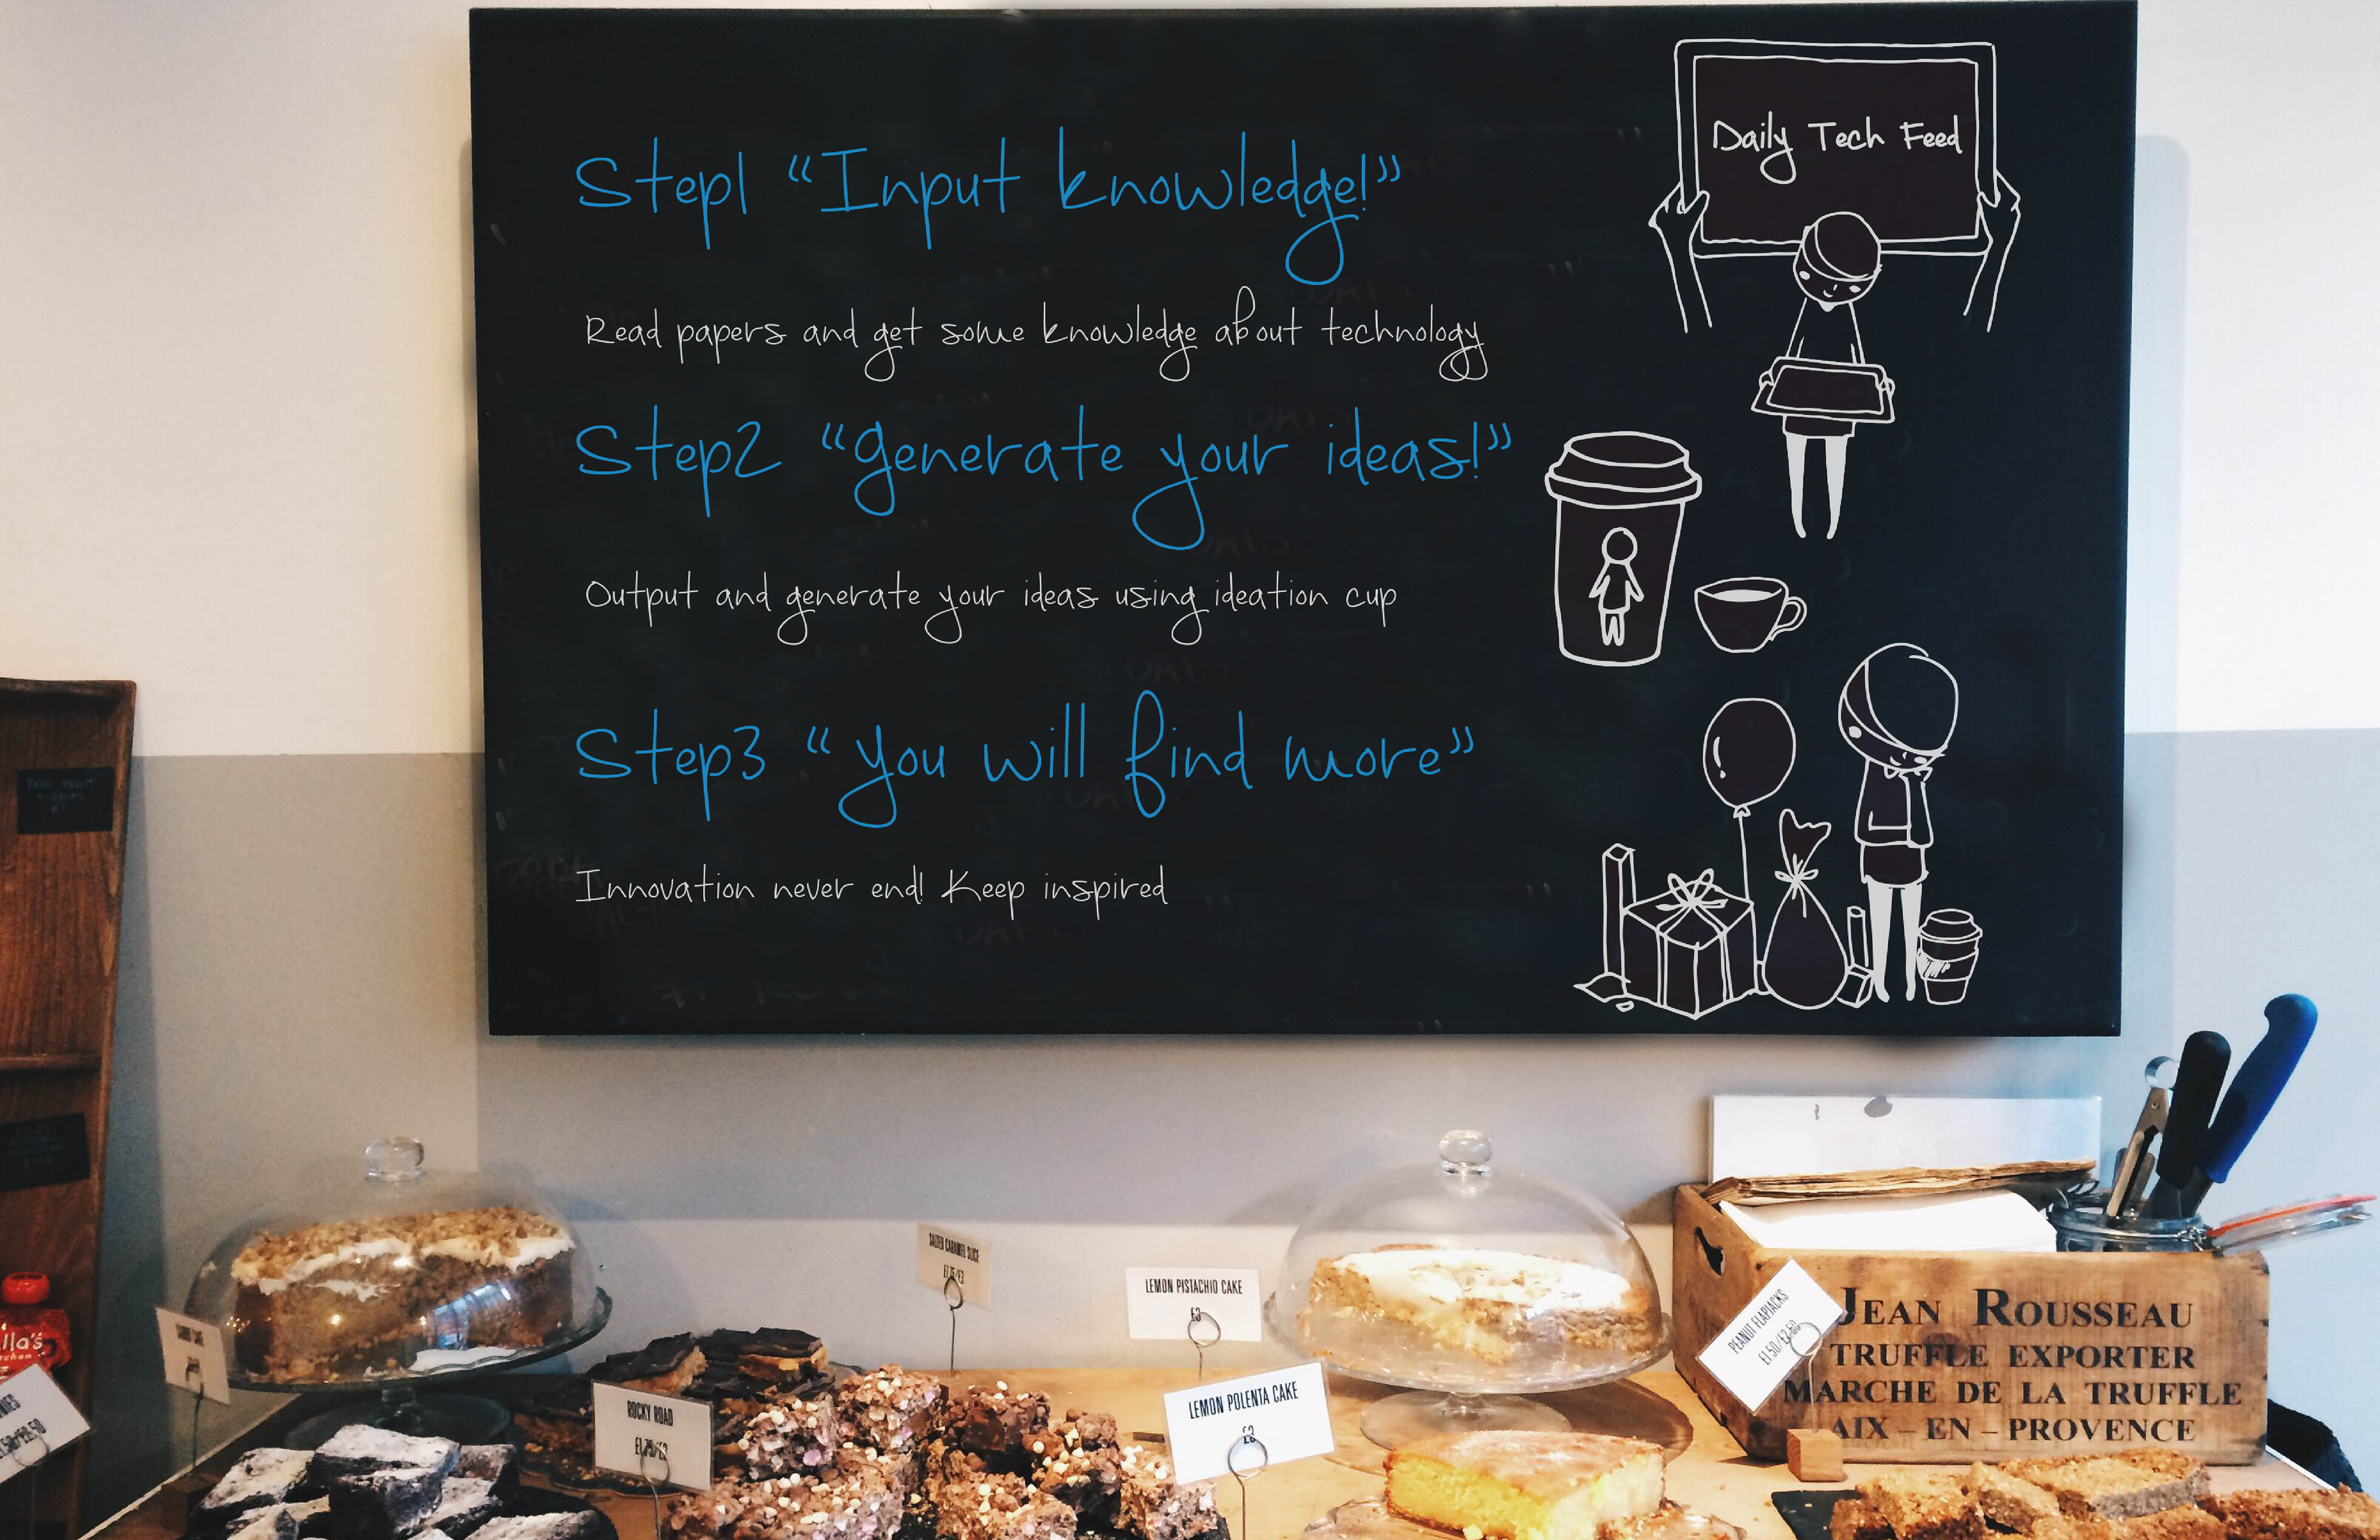 Daily Tech Feed
Step1 “Input knowledge!”
Read papers and get some knowledge about technology
Step2 “generate your ideas!”
Output and generate your ideas using ideation cup
Step3 “you will find more”
Innovation never end! Keep inspired
SALTED CARAMEL SLICE
LEMON PISTACHIO CAKE
£3
LEMON POLENTA CAKE
£2
ROCKY ROAD
£1.75/£2
PEANUT FLAPJACKS
£1.50/£2.50
JEAN ROUSSEAU
TRUFFLE EXPORTER
MARCHE DE LA TRUFFLE
AIX – EN – PROVENCE